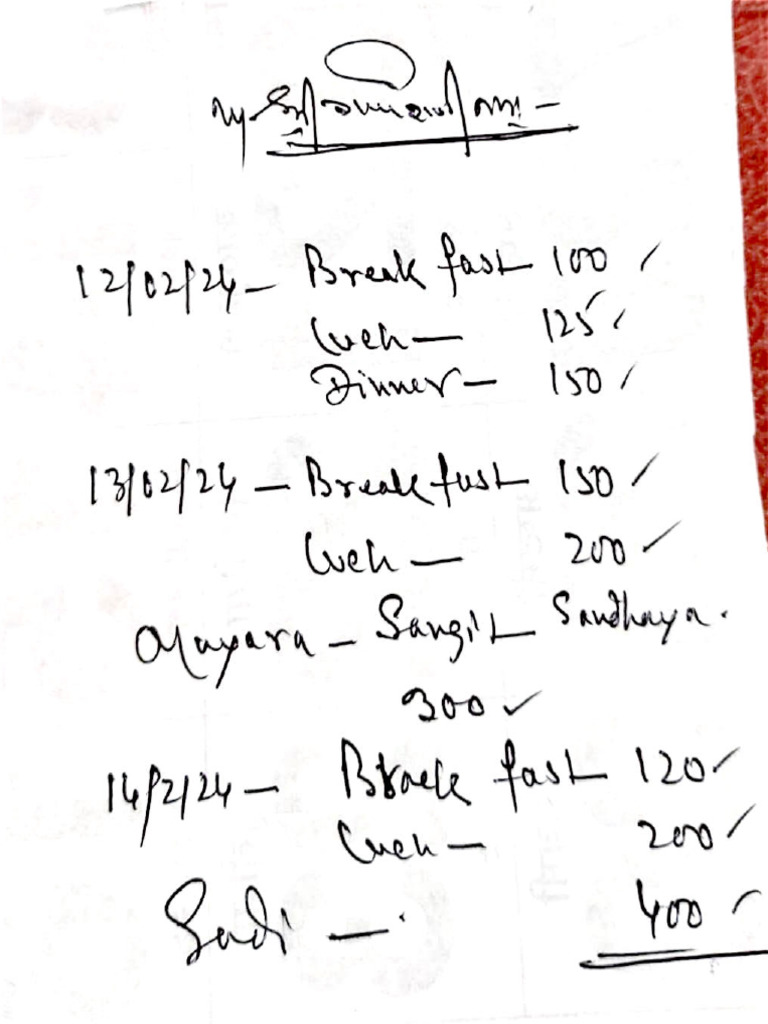 12/02/24 - Break fast 100
Luch - 125
Dinner - 150
13/02/24 - Break fast 150
Luch - 200
Mayara - Sangit Sandhaya.
300
14/2/24 - Break fast 120
Luch - 200
Sadi - 400